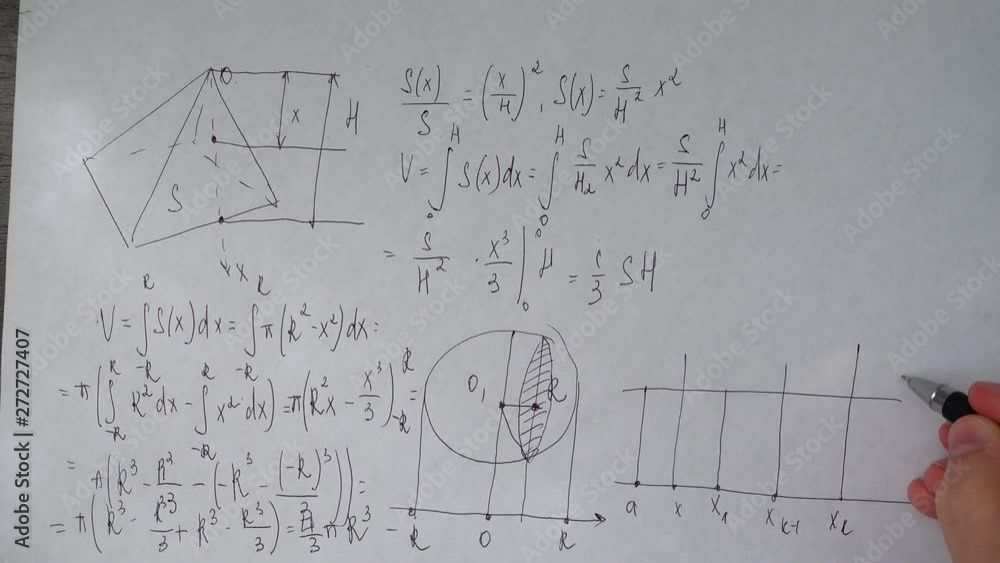 O
x
H
S
x
S(x)/S = (x/H)², S(x) = S/H² x²
V = ∫₀ᴴ S(x)dx = ∫₀ᴴ S/H₂ x²dx = S/H² ∫₀ᴴ x²dx =
= S/H² · x³/3 |₀ᴴ = 1/3 SH
V = ∫₋ᴿᴿ S(x)dx = ∫₋ᴿᴿ π(R² - x²)dx =
= π(∫₋ᴿᴿ R²dx - ∫₋ᴿᴿ x²dx) = π(R²x - x³/3)₋ᴿᴿ =
= π(R³ - R³/3 - (-R³ - (-R)³/3)) =
= π(R³ - R³/3 + R³ - R³/3) = 4/3 πR³
O₁ R
-R O R
a x x₁ x_k-1 x_k
Adobe Stock | #272727407
Adobe Stock